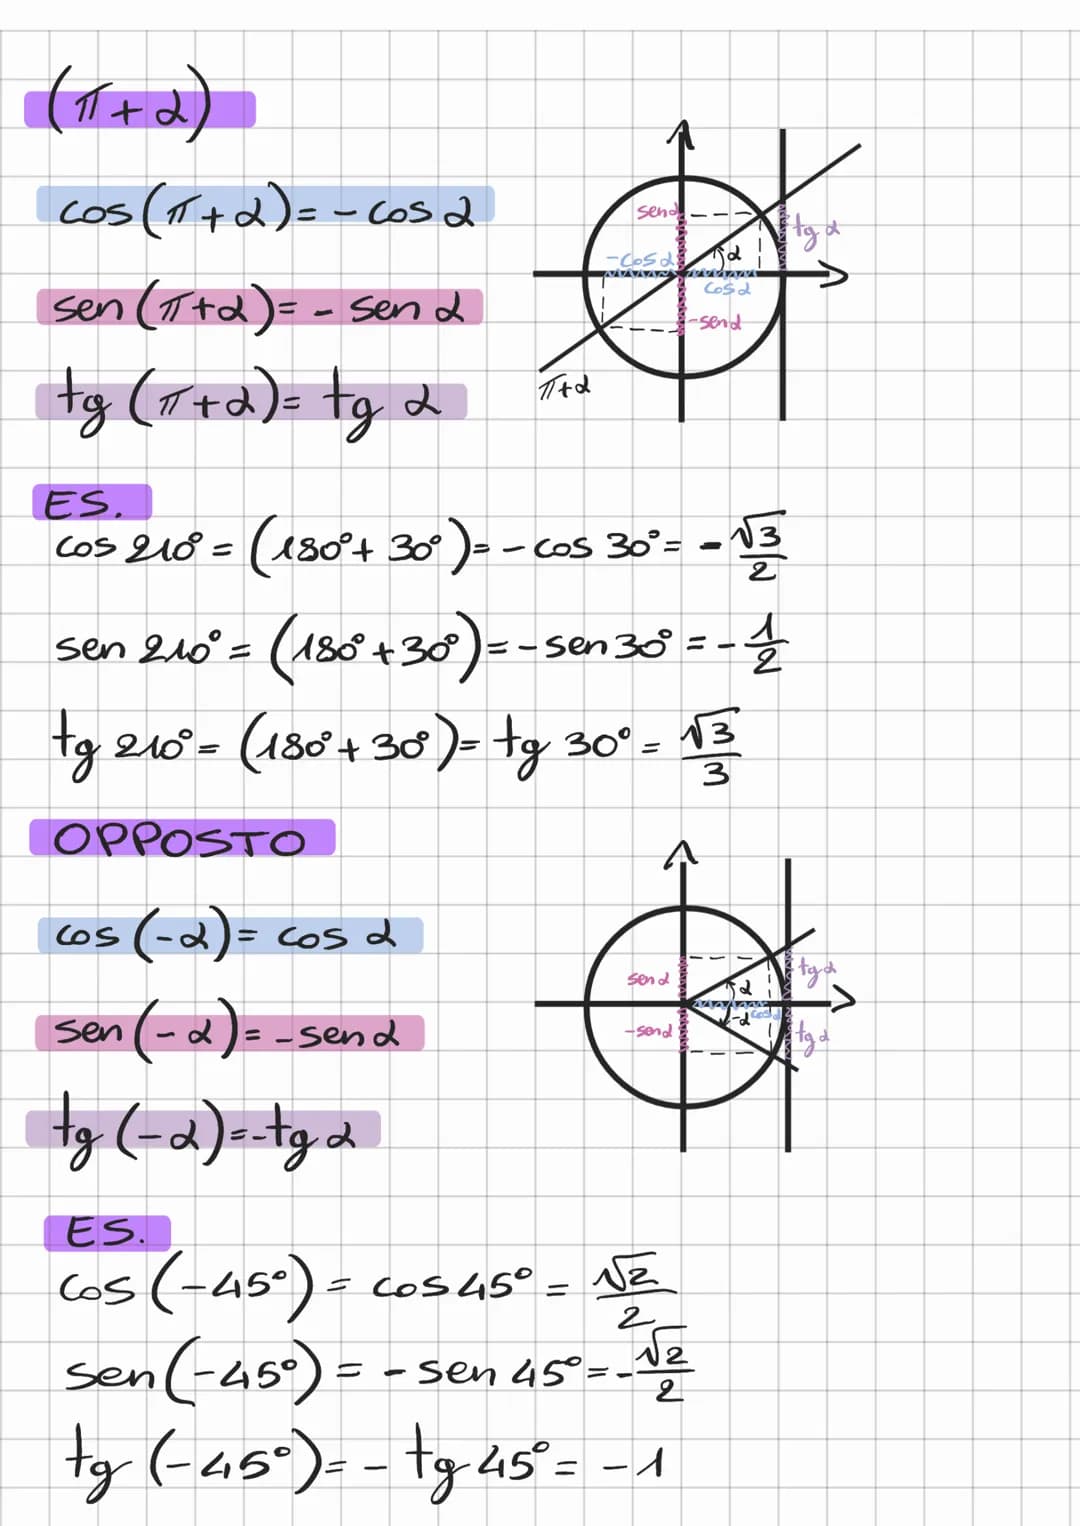 (π+α)
cos(π+α)=-cos α
sen(π+α)=- sen α
tg(π+α)= tg α
senα
-cosα
α
cosα
tg α
-senα
π+α
ES.
cos 210°= (180°+ 30°)= - cos 30°= - √3/2
sen 210°= (180°+30°)=-sen 30° =-1/2
tg 210°= (180°+ 30°)= tg 30° = √3/3
OPPOSTO
cos (-α)= cos α
sen(-α)= -sen α
tg (-α)=-tg α
sen α
α
tg α
-α
cosα
-sen α
tg α
ES.
cos (-45°) = cos 45° = √2/2
sen(-45°) = - sen 45°=-√2/2
tg (-45°)= - tg 45°= -1